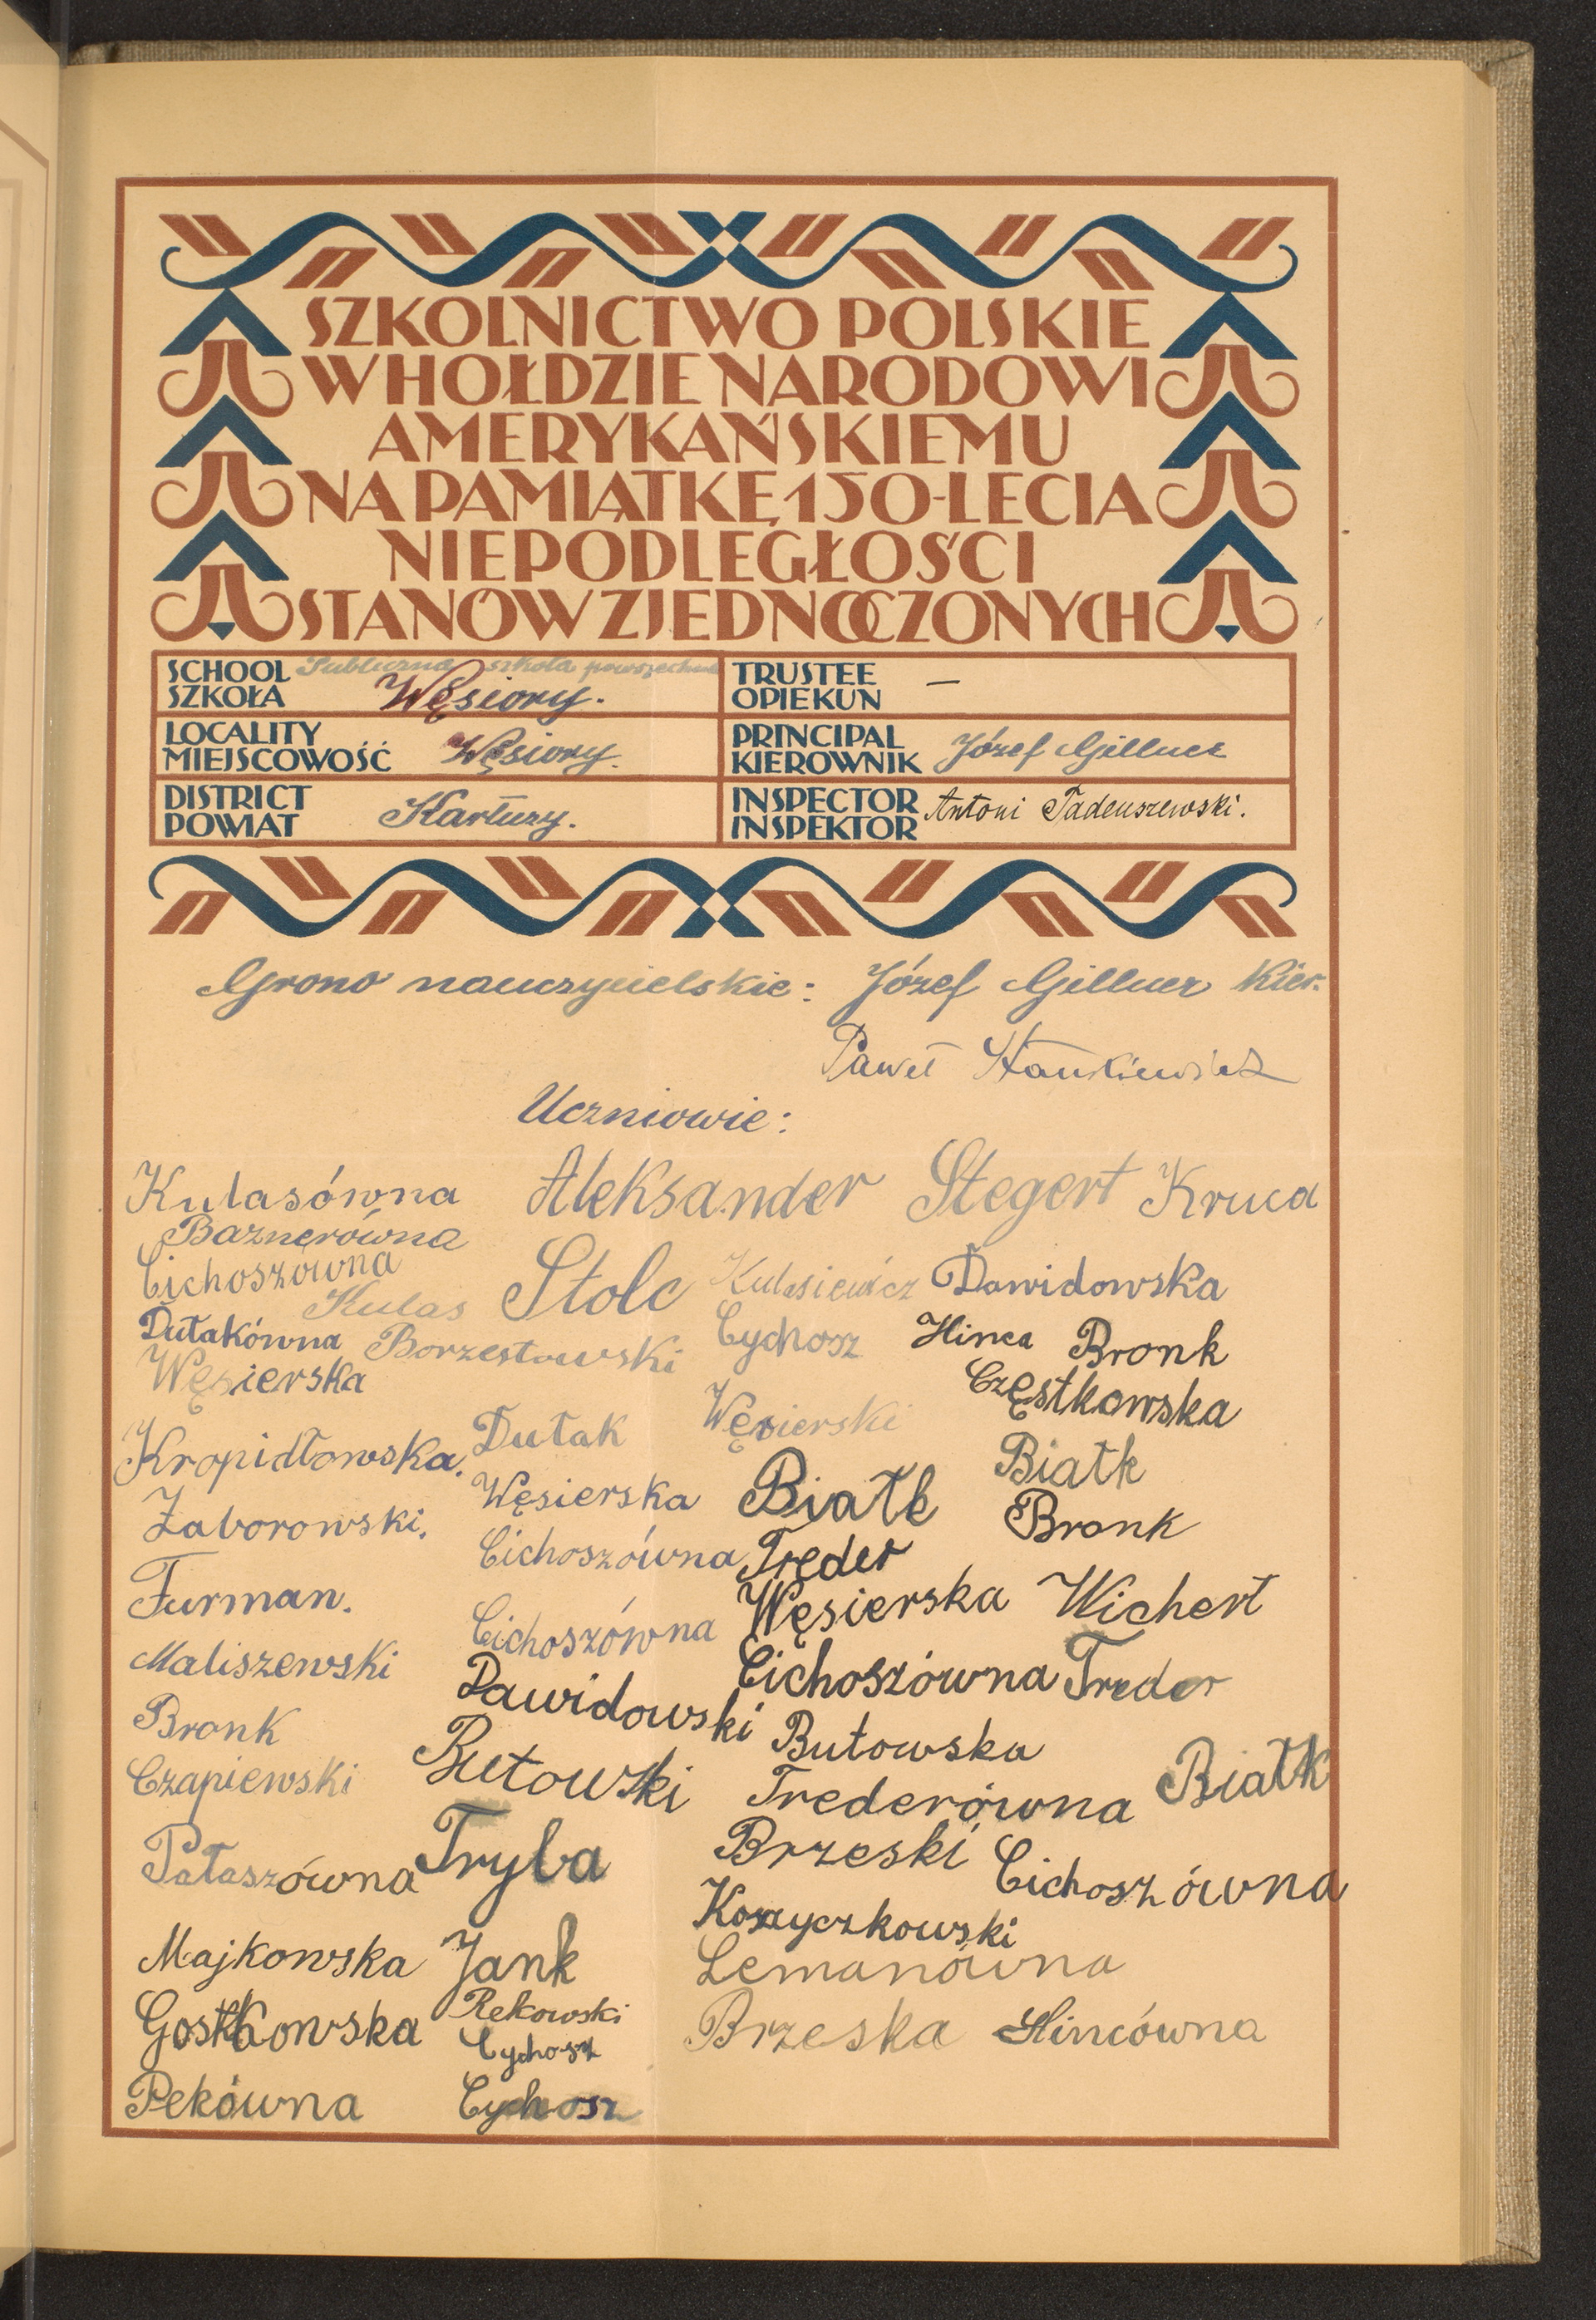 SZKOLNICTWO POLSKIE
W HOŁDZIE NARODOWI
AMERYKAŃSKIEMU
NA PAMIĄTKĘ 150-LECIA
NIEPODLEGŁOŚCI
STANÓW ZJEDNOCZONYCH
SCHOOL Publiczna szkoła powszechna
SZKOŁA Węsiory.
TRUSTEE
OPIEKUN —
LOCALITY
MIEJSCOWOŚĆ Węsiory.
PRINCIPAL
KIEROWNIK Józef Gillner
DISTRICT
POWIAT Kartuzy.
INSPECTOR
INSPEKTOR Antoni Tadeuszewski.
Grono nauczycielskie: Józef Gillner Kier.
Paweł Stankiewicz
Uczniowie:
Kulasówna Aleksander Stegert Kruca
Baznerówna
Cichoszówna
Kulas Stolc Kulasiewicz Dawidowska
Dułakówna Borzestowski Cychosz Hinca Bronk
Węsierska Częstkowska
Kropidłowska. Dułak Węsierski
Białk
Zaborowski. Węsierska Białk Bronk
Cichoszówna Treder
Furman. Cichoszówna Węsierska Wichert
Maliszewski Dawidowski Cichoszówna Treder
Bronk Butowska
Czapiewski Butowski Trederówna Białk
Pałaszówna Tryba Brzeski Cichoszówna
Korzyczkowski
Majkowska Jank Lemanówna
Gostkowska Rekowski Brzeska Hincówna
Cychosz
Pekówna Cychosz